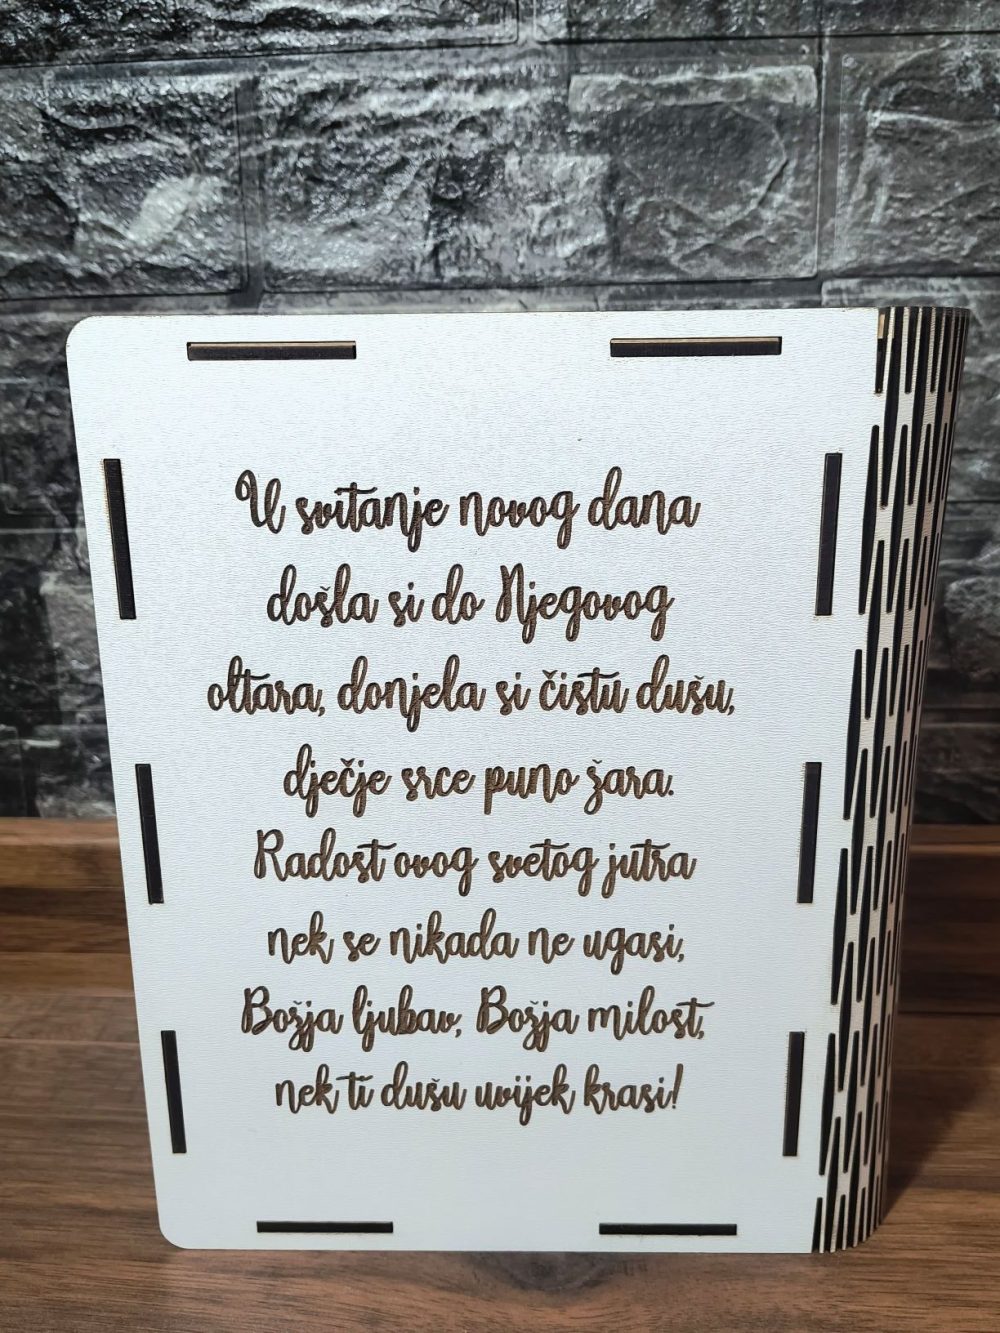 U svitanje novog dana
došla si do Njegovog
oltara, donjela si čistu dušu,
dječje srce puno žara.
Radost ovog svetog jutra
nek se nikada ne ugasi,
Božja ljubav, Božja milost,
nek ti dušu uvijek krasi!